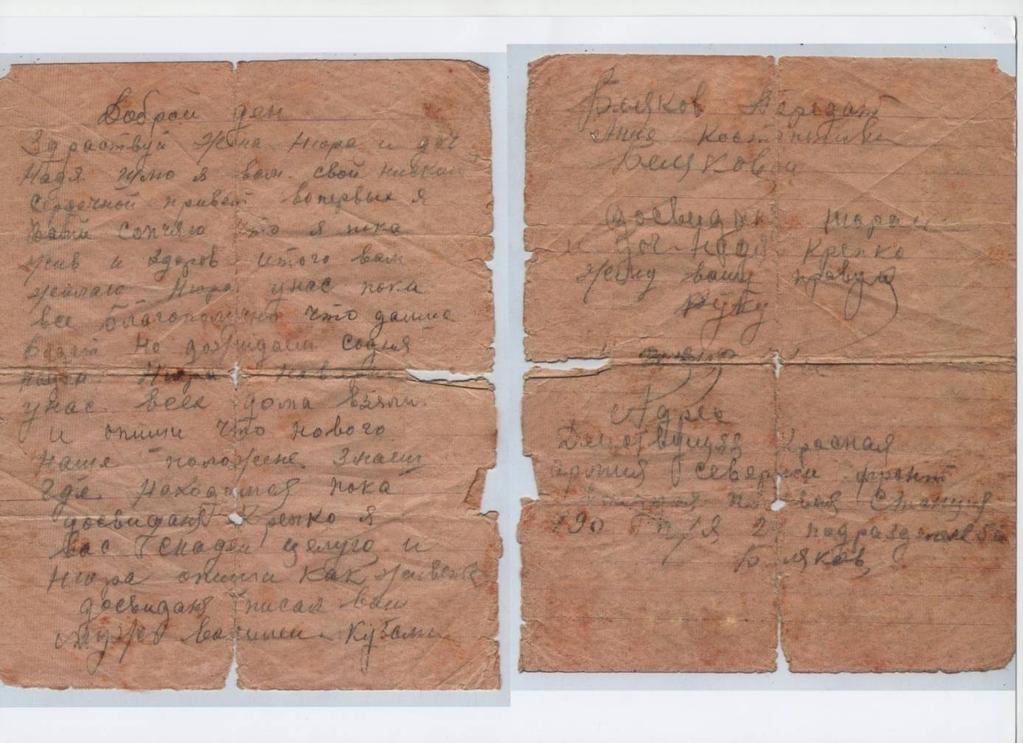 Доброй ден
Здраствуй жена Нюра и доч
Надя шлю я вам свой низкий
сердечной привет вопервых я
вам сопчяю что я пока
жив и здоров итого вам
желаю Нюра унас пока
все благополучно что дальше
будет но
Нюра
унас всех дома взяли
и опиши что нового
наше положене знаеш
где находимся пока
досвидан крепко я
вас целую и
Нюра опиши как живете
досвиданя писал ваш
муж
Беляков Передат
Анне Костантиновн
Беляковой
досвидан Нюра
и доч Надя Крепко
жму вашу правую
руку
Адрес
Действующая Красная
армия Северной фронт
почтовая станция
190 2 подразделене
Беляков